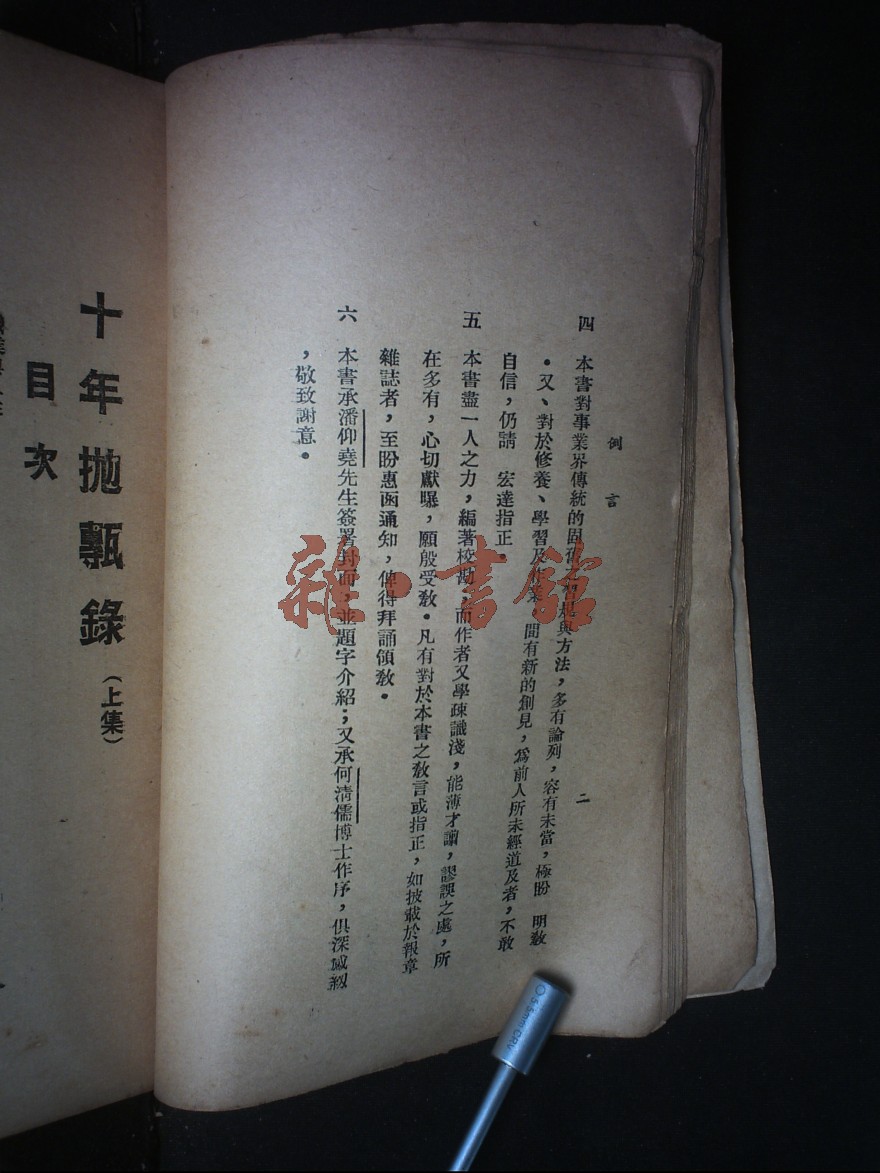 例言
二
四 本書對事業界傳統的固有習慣與方法，多有論列，容有未當，極盼 明教
。又、對於修養、學習及作業 間有新的創見，爲前人所未經道及者，不敢
自信，仍請 宏達指正
五 本書盡一人之力，編著校勘，而作者又學疎識淺，能薄才譾，謬誤之處，所
在多有，心切獻曝，願殷受敎。凡有對於本書之敎言或指正，如披載於報章
雜誌者，至盼惠函通知，俾得拜誦領敎。
六 本書承潘仰堯先生簽署封面，並題字介紹；又承何清儒博士作序，俱深感紉
，敬致謝意。
十年拋甎錄（上集）
目次
雜·書館
5.5mm CRV